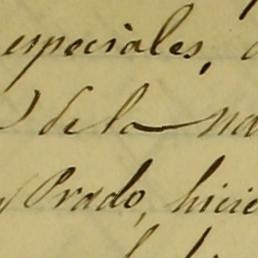 especiales,
de la na
Prado, hicie